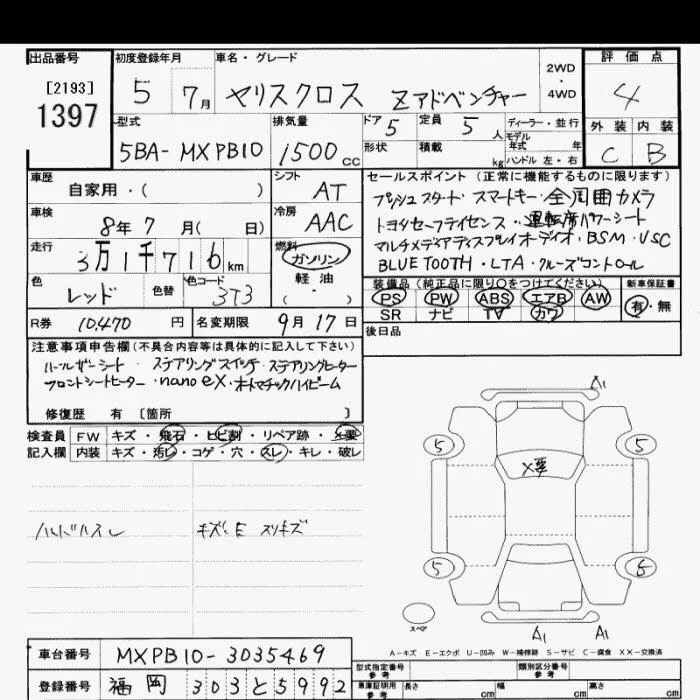 出品番号 初度登録年月 車名・グレード 2WD・4WD 評価点
[2193]
1397
5 7月 ヤリスクロス Zアドベンチャー 4
型式 排気量 ドア 5 定員 5人 ディーラー・並行 外装 内装
モデル年式 年式
5BA-MXPB10 1500cc 形状 積載 kg ハンドル 左・右 C B
車歴 自家用・( ) シフト AT セールスポイント(正常に機能するものに限ります)
プッシュスタート スマートキー・全周囲カメラ
車検 8年7月( 日) 冷房 AAC
トヨタセーフティセンス・運転席パワーシート
走行 3万1千716km 燃料 ガソリン
マルチメディアディスプレイオーディオ・BSM・VSC
軽油
・( )
BLUETOOTH・LTA・クルーズコントロール
色 レッド 色替 色コード 3T3
装備品(純正品に限り○をつけてください) 新車保証書
PS PW ABS エアB AW 有・無
SR ナビ TV カワ
R券 10,470円 名変期限 9月17日
後日品
注意事項申告欄(不具合内容等は具体的に記入して下さい)
ハーフレザーシート・ステアリングスイッチ・ステアリングヒーター
フロントシートヒーター・nanoeX・オートマチックハイビーム
修復歴 有〔箇所 〕
検査員 FW キズ・飛石・ヒビ割・リペア跡・×要
記入欄 内装 キズ・汚レ・コゲ・穴・スレ・キレ・破レ
ハンドルスレ キズ・E スリキズ
A1
5 5
×要
5 5
スペア
A1 A1
A-キズ E-エクボ U-凹み W-補修跡 S-サビ C-腐食 XX-交換済
車台番号 MXPB10-3035469
型式指定番号 参考 類別区分番号 参考
登録番号 福岡 303と5992
車庫証明用 参考 長さ cm 幅 cm 高さ cm